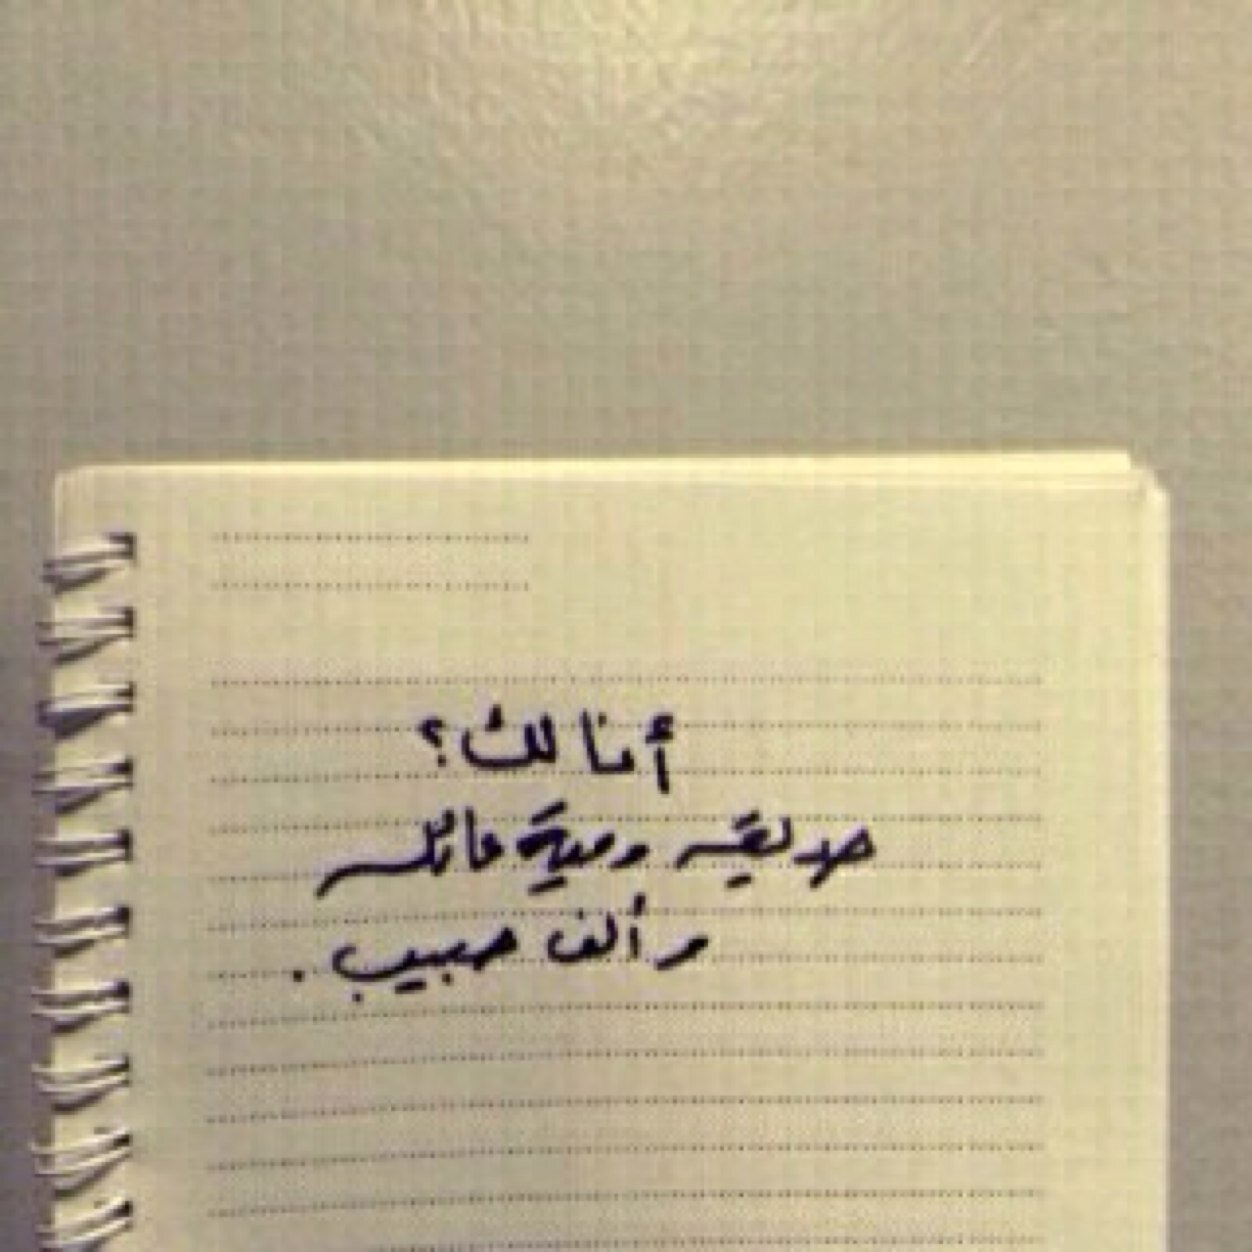 أنا لك؟
صديقه ومية عائله
وألف حبيب.